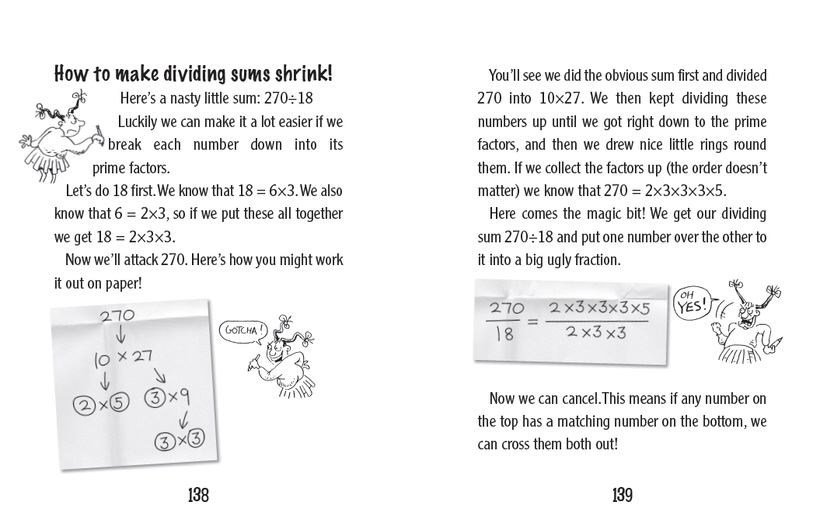 How to make dividing sums shrink!
Here's a nasty little sum: 270÷18
Luckily we can make it a lot easier if we
break each number down into its
prime factors.
Let's do 18 first. We know that 18 = 6×3. We also
know that 6 = 2×3, so if we put these all together
we get 18 = 2×3×3.
Now we'll attack 270. Here's how you might work
it out on paper!
270
10 × 27
2 × 5 3 × 9
3 × 3
GOTCHA!
138
You'll see we did the obvious sum first and divided
270 into 10×27. We then kept dividing these
numbers up until we got right down to the prime
factors, and then we drew nice little rings round
them. If we collect the factors up (the order doesn't
matter) we know that 270 = 2×3×3×3×5.
Here comes the magic bit! We get our dividing
sum 270÷18 and put one number over the other to
it into a big ugly fraction.
270 = 2×3×3×3×5
18 2×3×3
OH
YES!
Now we can cancel. This means if any number on
the top has a matching number on the bottom, we
can cross them both out!
139